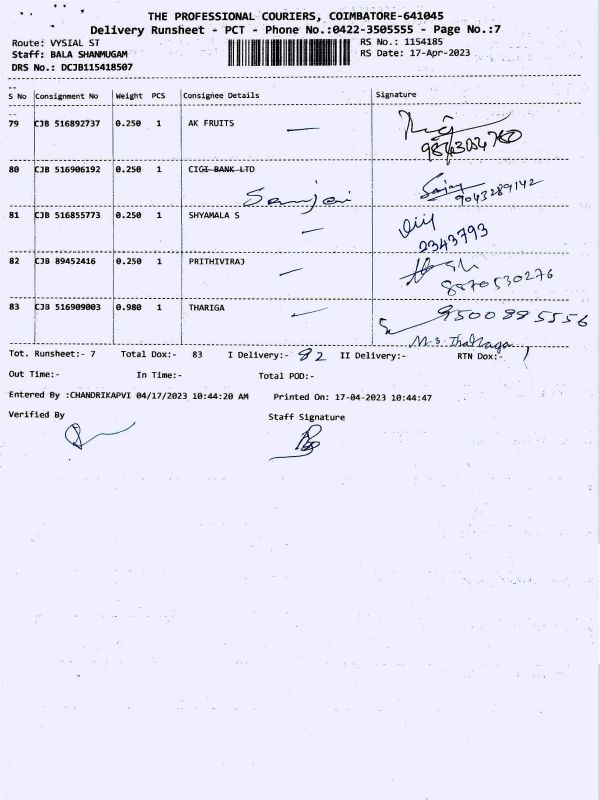 THE PROFESSIONAL COURIERS, COIMBATORE-641045
Delivery Runsheet - PCT - Phone No.:0422-3505555 - Page No.:7
Route: VYSIAL ST
RS No.: 1154185
Staff: BALA SHANMUGAM
RS Date: 17-Apr-2023
DRS No.: DCJB115418507
S No Consignment No Weight PCS Consignee Details Signature
79 CJB 516892737 0.250 1 AK FRUITS
80 CJB 516906192 0.250 1 CIGI BANK LTD
Sanjai
9043289142
81 CJB 516855773 0.250 1 SHYAMALA S
2343793
82 CJB 89452416 0.250 1 PRITHIVIRAJ
8870530276
83 CJB 516909003 0.980 1 THARIGA
9500895556
Tot. Runsheet:- 7 Total Dox:- 83 I Delivery:- 82 II Delivery:- RTN Dox:- 1
Out Time:- In Time:- Total POD:-
Entered By :CHANDRIKAPVI 04/17/2023 10:44:20 AM Printed On: 17-04-2023 10:44:47
Verified By Staff Signature